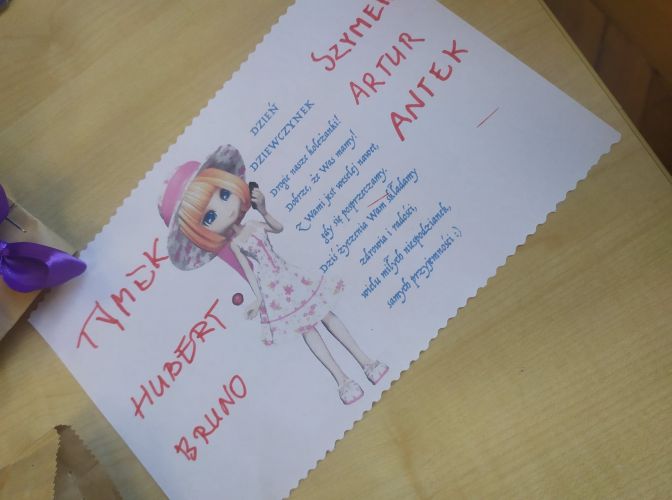 TYMEK
HUBERT
BRUNO
DZIEŃ
DZIEWCZYNEK
Drogie nasze koleżanki!
Dobrze, że Was mamy!
Z Wami jest weselej nawet,
gdy się posprzeczamy.
Dziś życzenia Wam składamy
zdrowia i radości,
wielu miłych niespodzianek,
samych przyjemności :)
SZYMEK
ARTUR
ANTEK